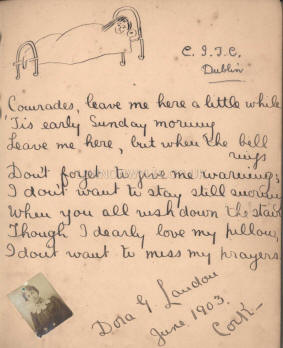 C.I.T.C.
Dublin
Comrades, leave me here a little while
'Tis early Sunday morning
Leave me here, but when the bell
rings
Don't forget to give me warning;
I don't want to stay still snoring
When you all rush down the stairs
Though I dearly love my pillow,
I don't want to miss my prayers
Dora G. Landon
June. 1903.
Cork